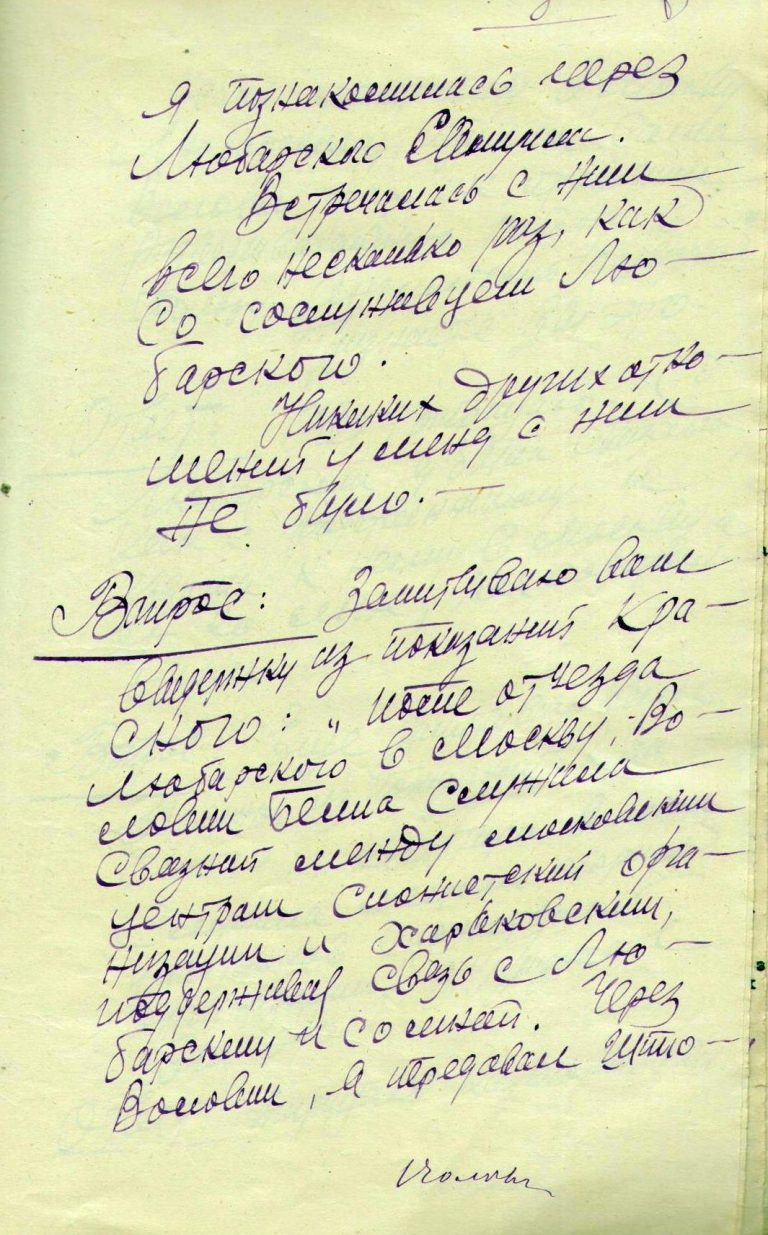 я познакомилась через
Любарского
Встречалась с ним
всего несколько раз, как
со сослуживцем Лю-
барского.
Никаких других отно-
шений у меня с ним
не было. —
Вопрос: Зачитываю вам
выдержку из показаний Кра-
сного: „после отъезда
Любарского в Москву, Во-
лович Белла служила
связной между московским
центром Сионистской орга-
низации и Харьковским,
поддерживая связь с Лю-
барским и со мной. Через
Волович, я передавал